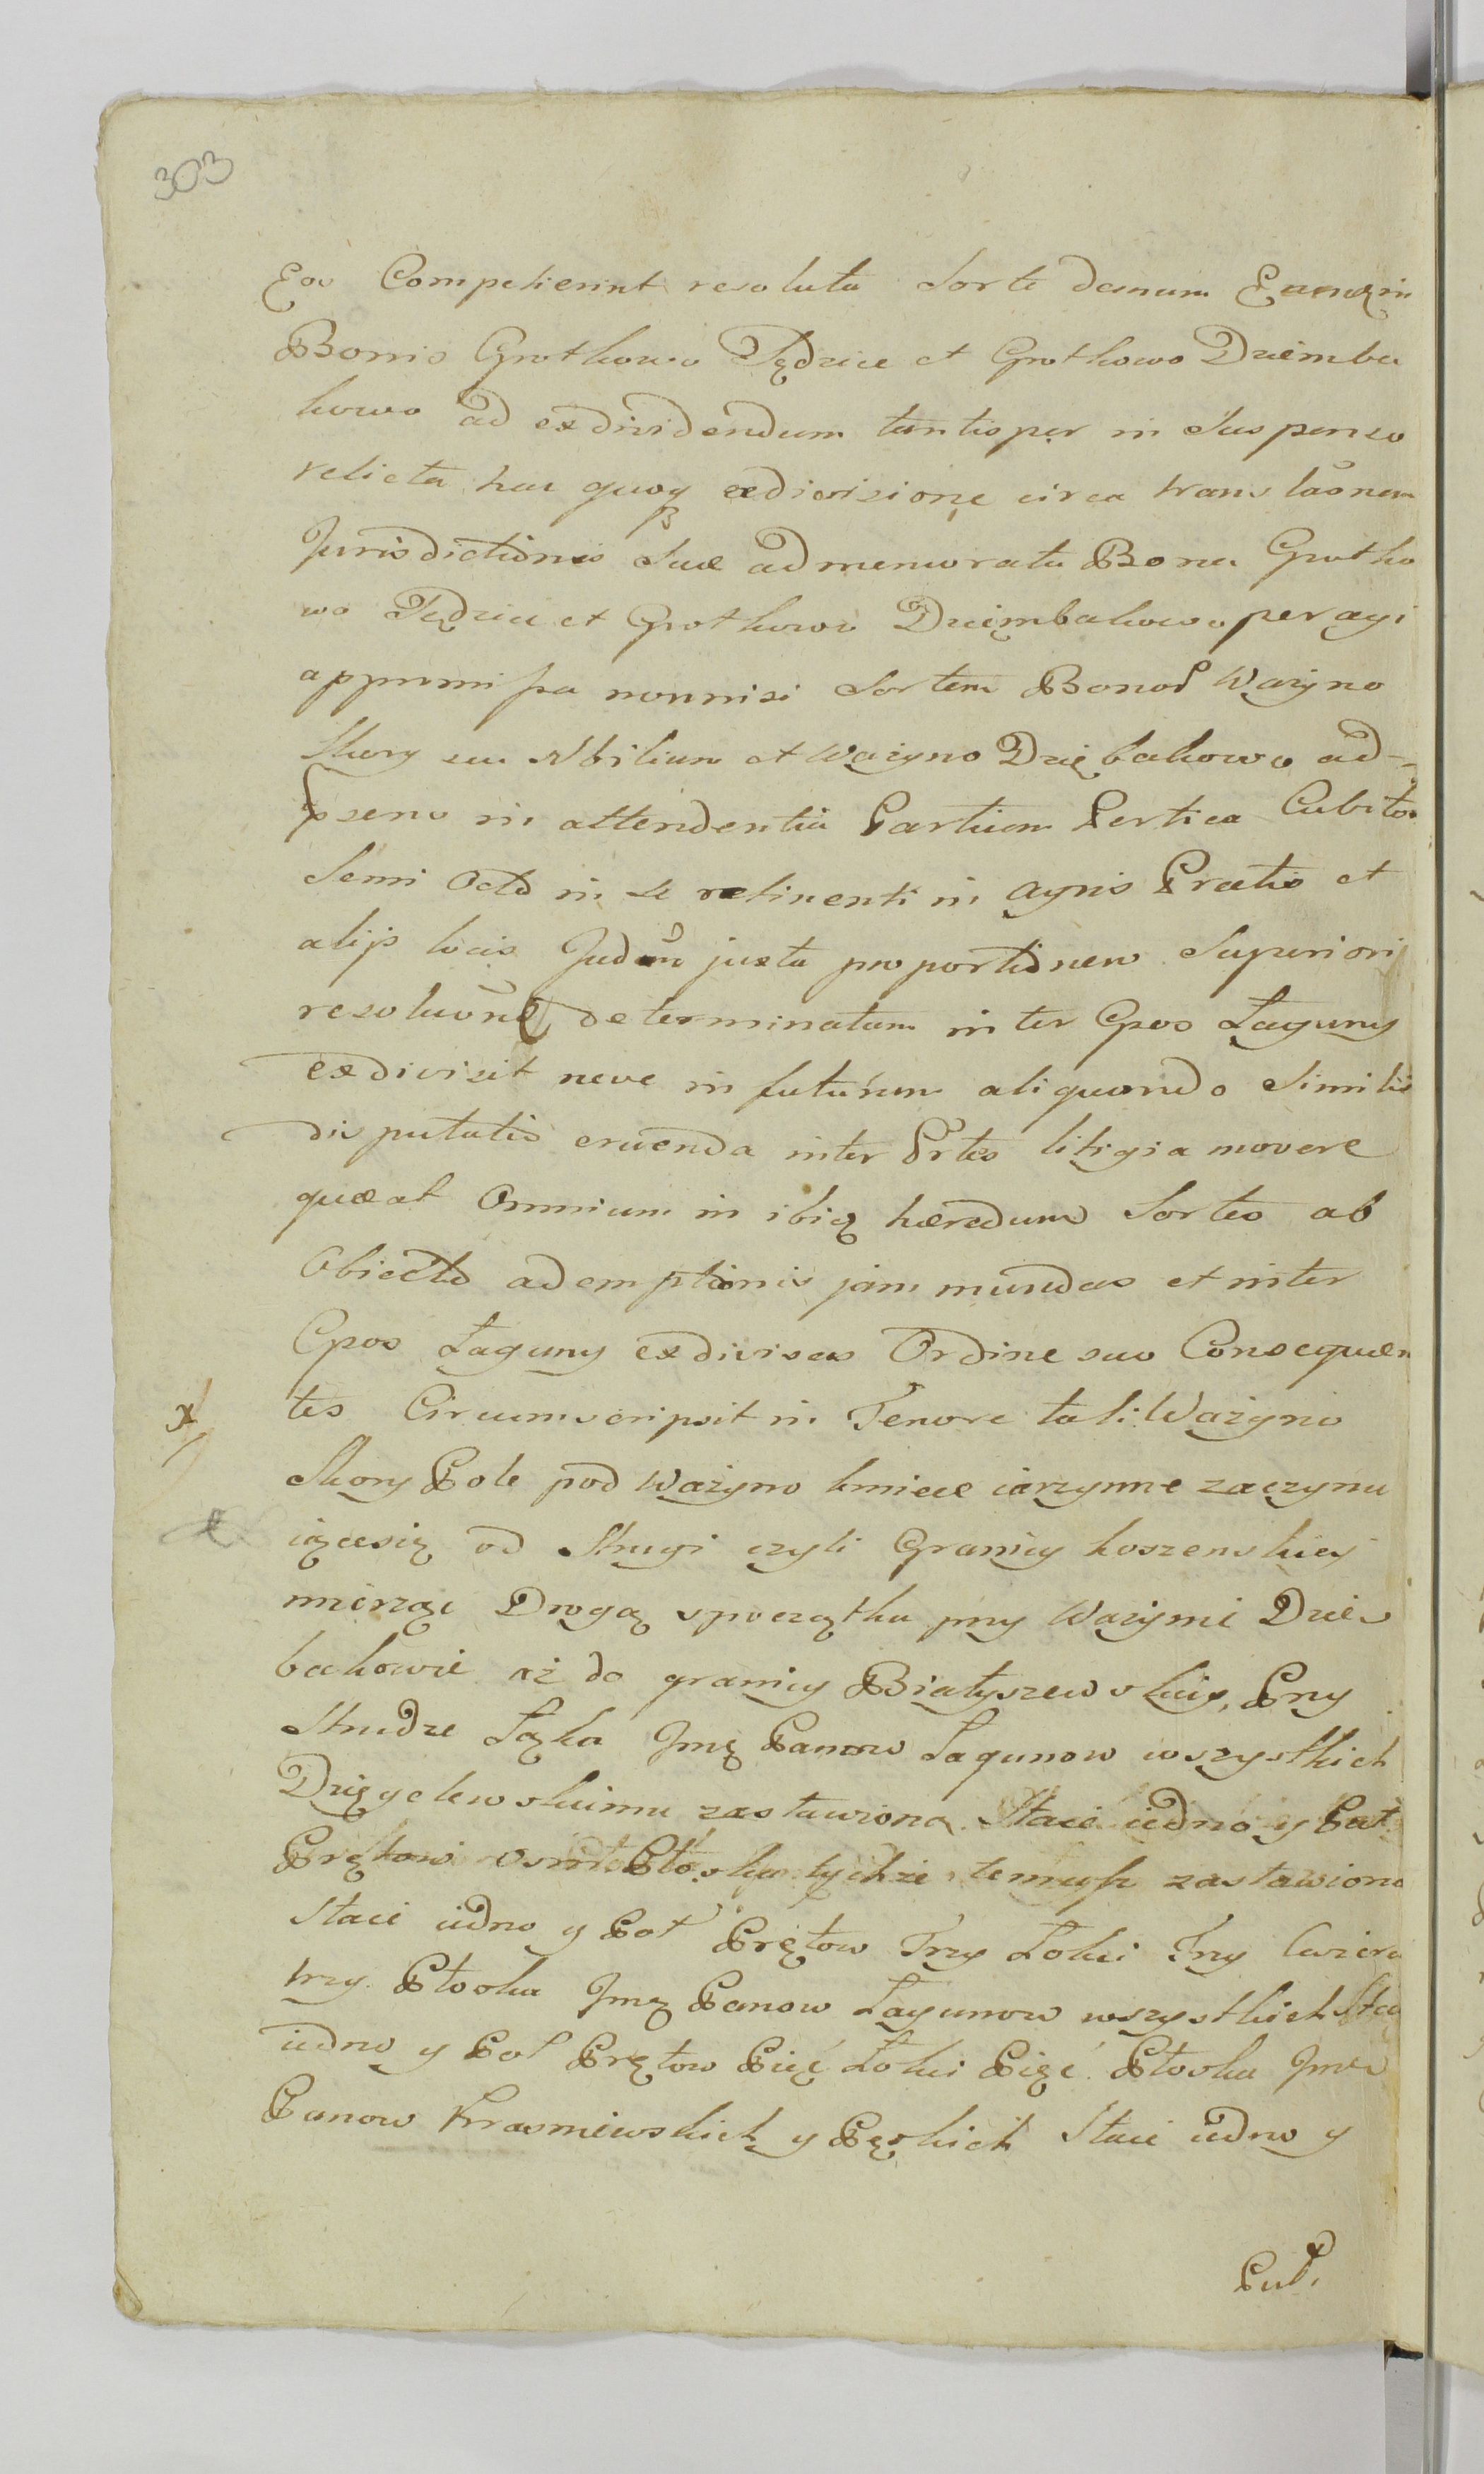 303
Eos Competierint resoluta Sorte demum Eanq in
Bonis Grothowo Jędrice et Grothowo Dziemba
kowo ad exdividendum tantisper in Suspenso
relicta hac quoq exdivisione circa translaõnem
Jurisdictionis Suæ ad memorata Bona Grotho
wo et Grothowo Dziembakowo peragi
nonnisi Sortem Bonor Ważyno
Skory seu Nobilium et Ważyno Dziębakowo ad-
in attendentia Partium Pertica Cubitos
Semi Octo in se retinenti in agris Pratis et
alijs locis juxta proportionem Superiori
determinatam inter Cpos Łaguny
exdivisit neve in futurum aliquando Similis
disputatio eruenda inter Prtes litigia movere
queat Omnium in ibiq hæredum Sortes ab
Obiecto ademptionis jam mundas et inter
Cpos Łaguny exdivisas Ordine suo Consequen
tes Circumscripsit in Tenore tali Ważyno
Skory Pole pod Ważyno kmiece iarzynne zaczyna
iącesię od Strugi czyli Granicy koszenskiey
mierząc Drogą zpoczątku przy Ważynie Dzię
bakowie aż do granicy Białyszewskiey, Przy
Strudze Łąka Jmę Panow Łagunow wszystkich
Dzięgelewskiemu zastawiona Staie iedno y Puł
Prętow osm Płoska tychże temuż zastawiona
Staie iedno y Poł Prętow Trzy Łokci Trzy Cwierci
trzy Płoska Jmę Panow Łagunow wszystkich Staie
iedno y Poł Prętow Pięć Łokci Pięć Płoska Jmę
Panow Krasniewskich y Pęskich Staie iedno y
Puł.